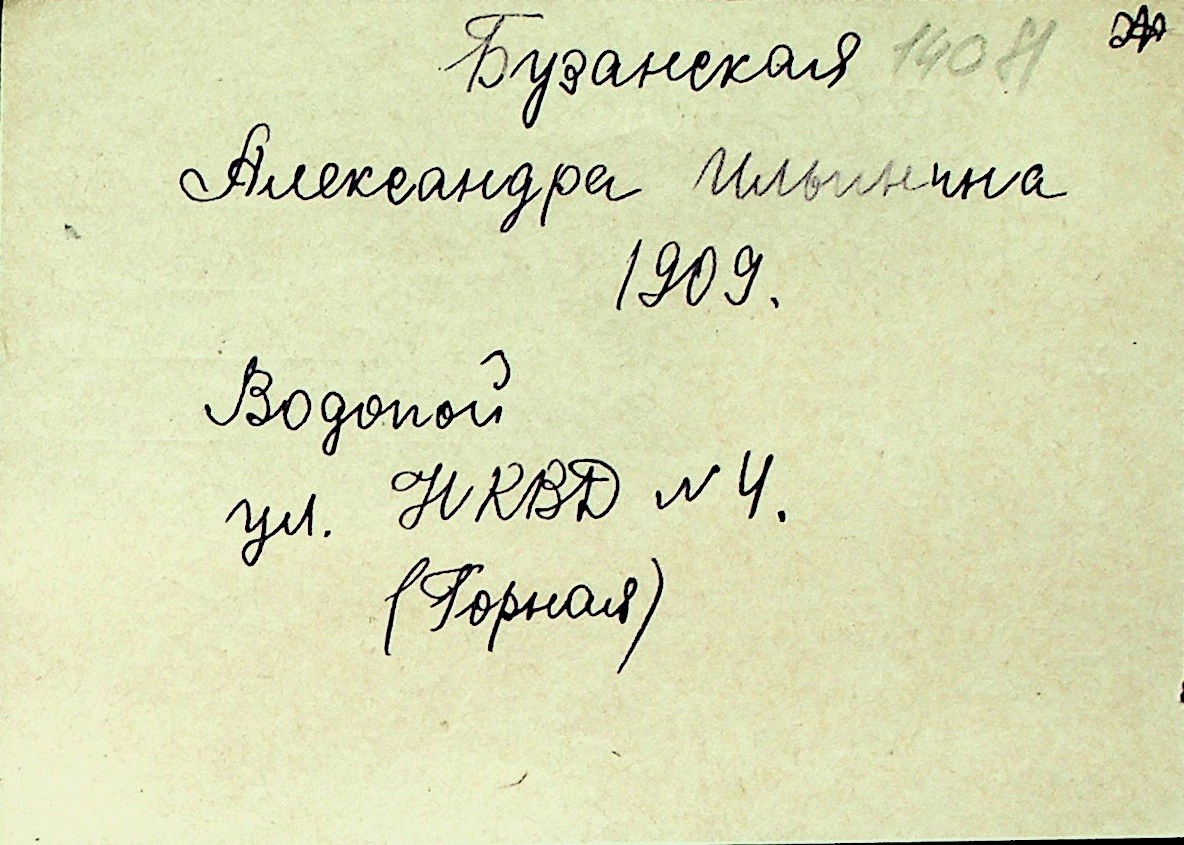 Бузанская
Александра Ильинична
1909.
Водопой
ул. НКВД № 4.
(Горная)